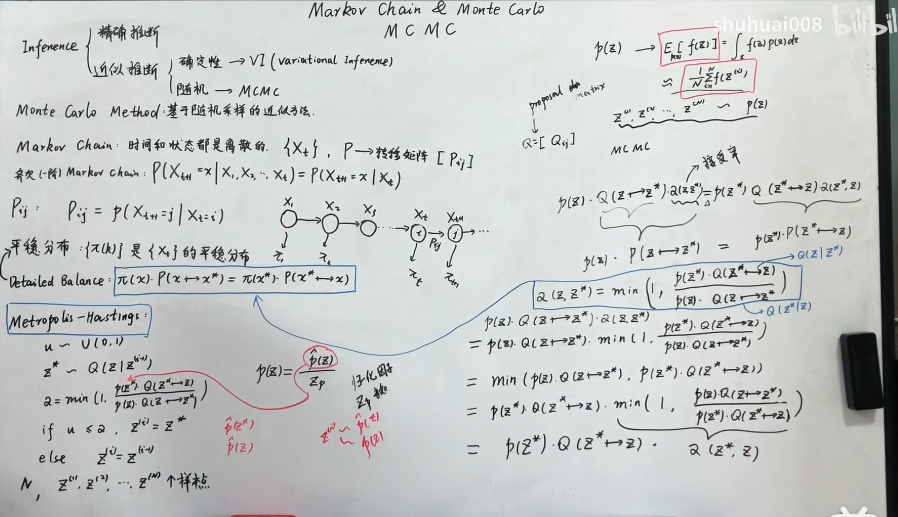 Markov Chain & Monte Carlo
MCMC
shuhuai008 bilibili
Inference { 精确推断
近似推断 { 确定性 → VI (variational Inference)
随机 → MCMC
Monte Carlo Method: 基于随机采样的近似方法.
Markov Chain: 时间和状态都是离散的. {X_t}, P → 转移矩阵 [P_ij]
齐次(一阶) Markov Chain: P(X_{t+1}=x | X_1, X_2, ··, X_t) = P(X_{t+1}=x | X_t)
P_ij: P_ij = p(X_{t+1}=j | X_t=i)
X_1 X_2 X_3 X_t X_{t+1}
i P_ij j ···
π_1 π_2 π_t π_{t+1}
平稳分布: {π(k)} 是 {X_t} 的平稳分布
Detailed Balance: π(x)·P(x→x*) = π(x*)·P(x*→x)
Metropolis-Hastings:
u ~ U(0,1)
z* ~ Q(z|z^(i-1))
α = min(1, p(z*)·Q(z*→z) / p(z)·Q(z→z*))
if u ≤ α, z^(i) = z*
else z^(i) = z^(i-1)
N, z^(1), z^(2), ···, z^(N) 个样本点
p(z) = p̂(z) / z_p
归一化因子
z_p
p̂(z*)
p̂(z)
z^(i) ~ p̂(z)
~ p(z)
p(z) → E_{p(z)}[f(z)] = ∫_z f(z) p(z) dz
≈ 1/N Σ_{i=1}^N f(z^(i))
z^(1), z^(2), ···, z^(N) ~ p(z)
proposal matrix
Q = [Q_ij]
MCMC
接受率
p(z)·Q(z→z*)·α(z,z*) = p(z*)·Q(z*→z)·α(z*,z)
p(z)·P(z→z*) = p(z*)·P(z*→z)
α(z,z*) = min(1, p(z*)·Q(z*→z) / p(z)·Q(z→z*))
Q(z|z*)
Q(z*|z)
p(z)·Q(z→z*)·α(z,z*)
= p(z)·Q(z→z*)·min(1, p(z*)·Q(z*→z) / p(z)·Q(z→z*))
= min(p(z)·Q(z→z*), p(z*)·Q(z*→z))
= p(z*)·Q(z*→z)·min(1, p(z)·Q(z→z*) / p(z*)·Q(z*→z))
= p(z*)·Q(z*→z)·α(z*,z)